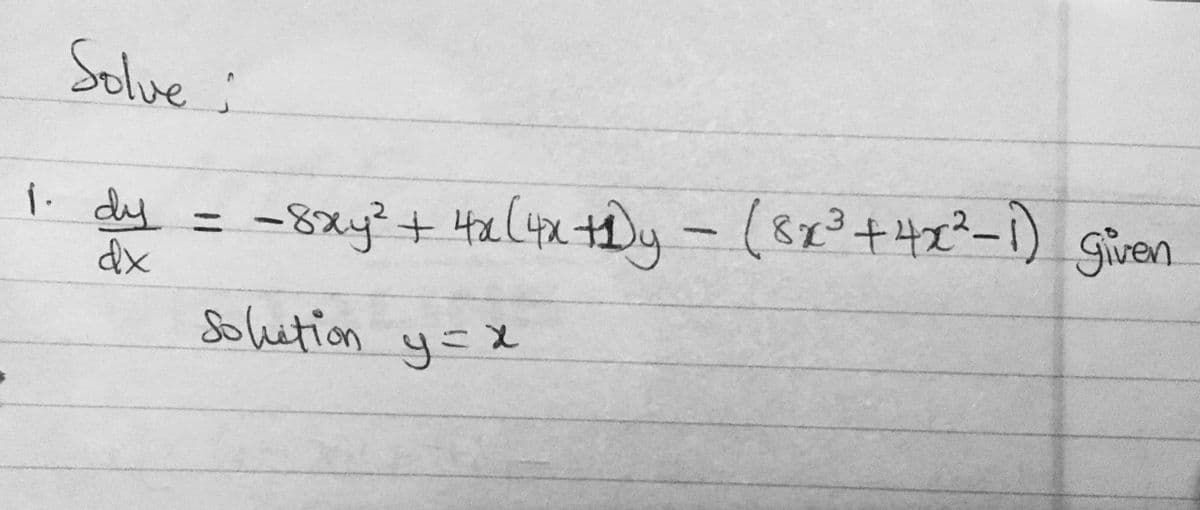 Solve ;
1. dy/dx = -8xy² + 4x(4x+1)y - (8x³+4x²-1) given
Solution y=x